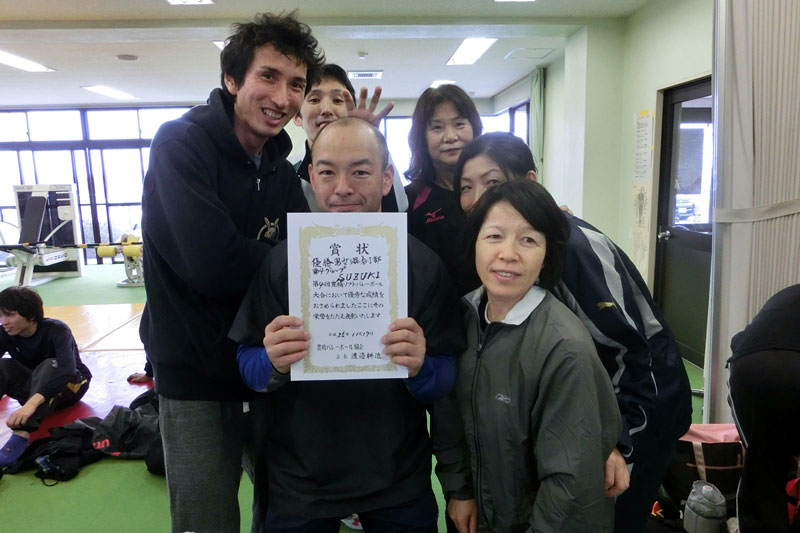 賞状
優勝男女混合Ⅰ部
SUZUKI
第4回豊橋ソフトバレーボール
大会において優秀な成績を
おさめられましたここにその
栄誉をたたえ表彰いたします
豊橋バレーボール協会
会長 渡邉耕造
MIZUNO